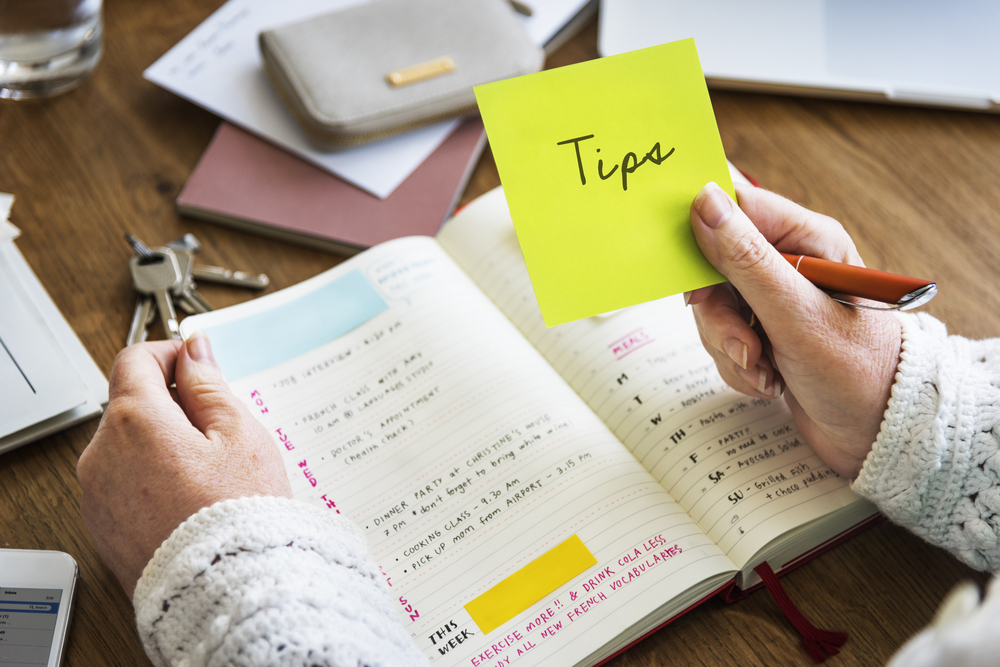 Tips
• JOB INTERVIEW - 4:30 PM
• FRENCH CLASS WITH AMY
10 am @ LANGUAGES STUDIO
• DOCTOR'S APPOINTMENT
(health check)
• DINNER PARTY at CHRISTINE'S HOUSE
7 PM • don't forget to bring white wine
• COOKING CLASS - 9.30 AM
• PICK UP mom from AIRPORT - 3.15 PM
MON
TUE
WED
SUN
THIS
WEEK
EXERCISE MORE!! & DRINK COLA LESS
ALL NEW FRENCH VOCABULARIES
MEALS
M -
T -
W - Roasted
TH - Pasta with
F - PARTY!
no need to cook
SA - Avocado Salad
SU - Grilled Fish
+ choco pudding
Inbox